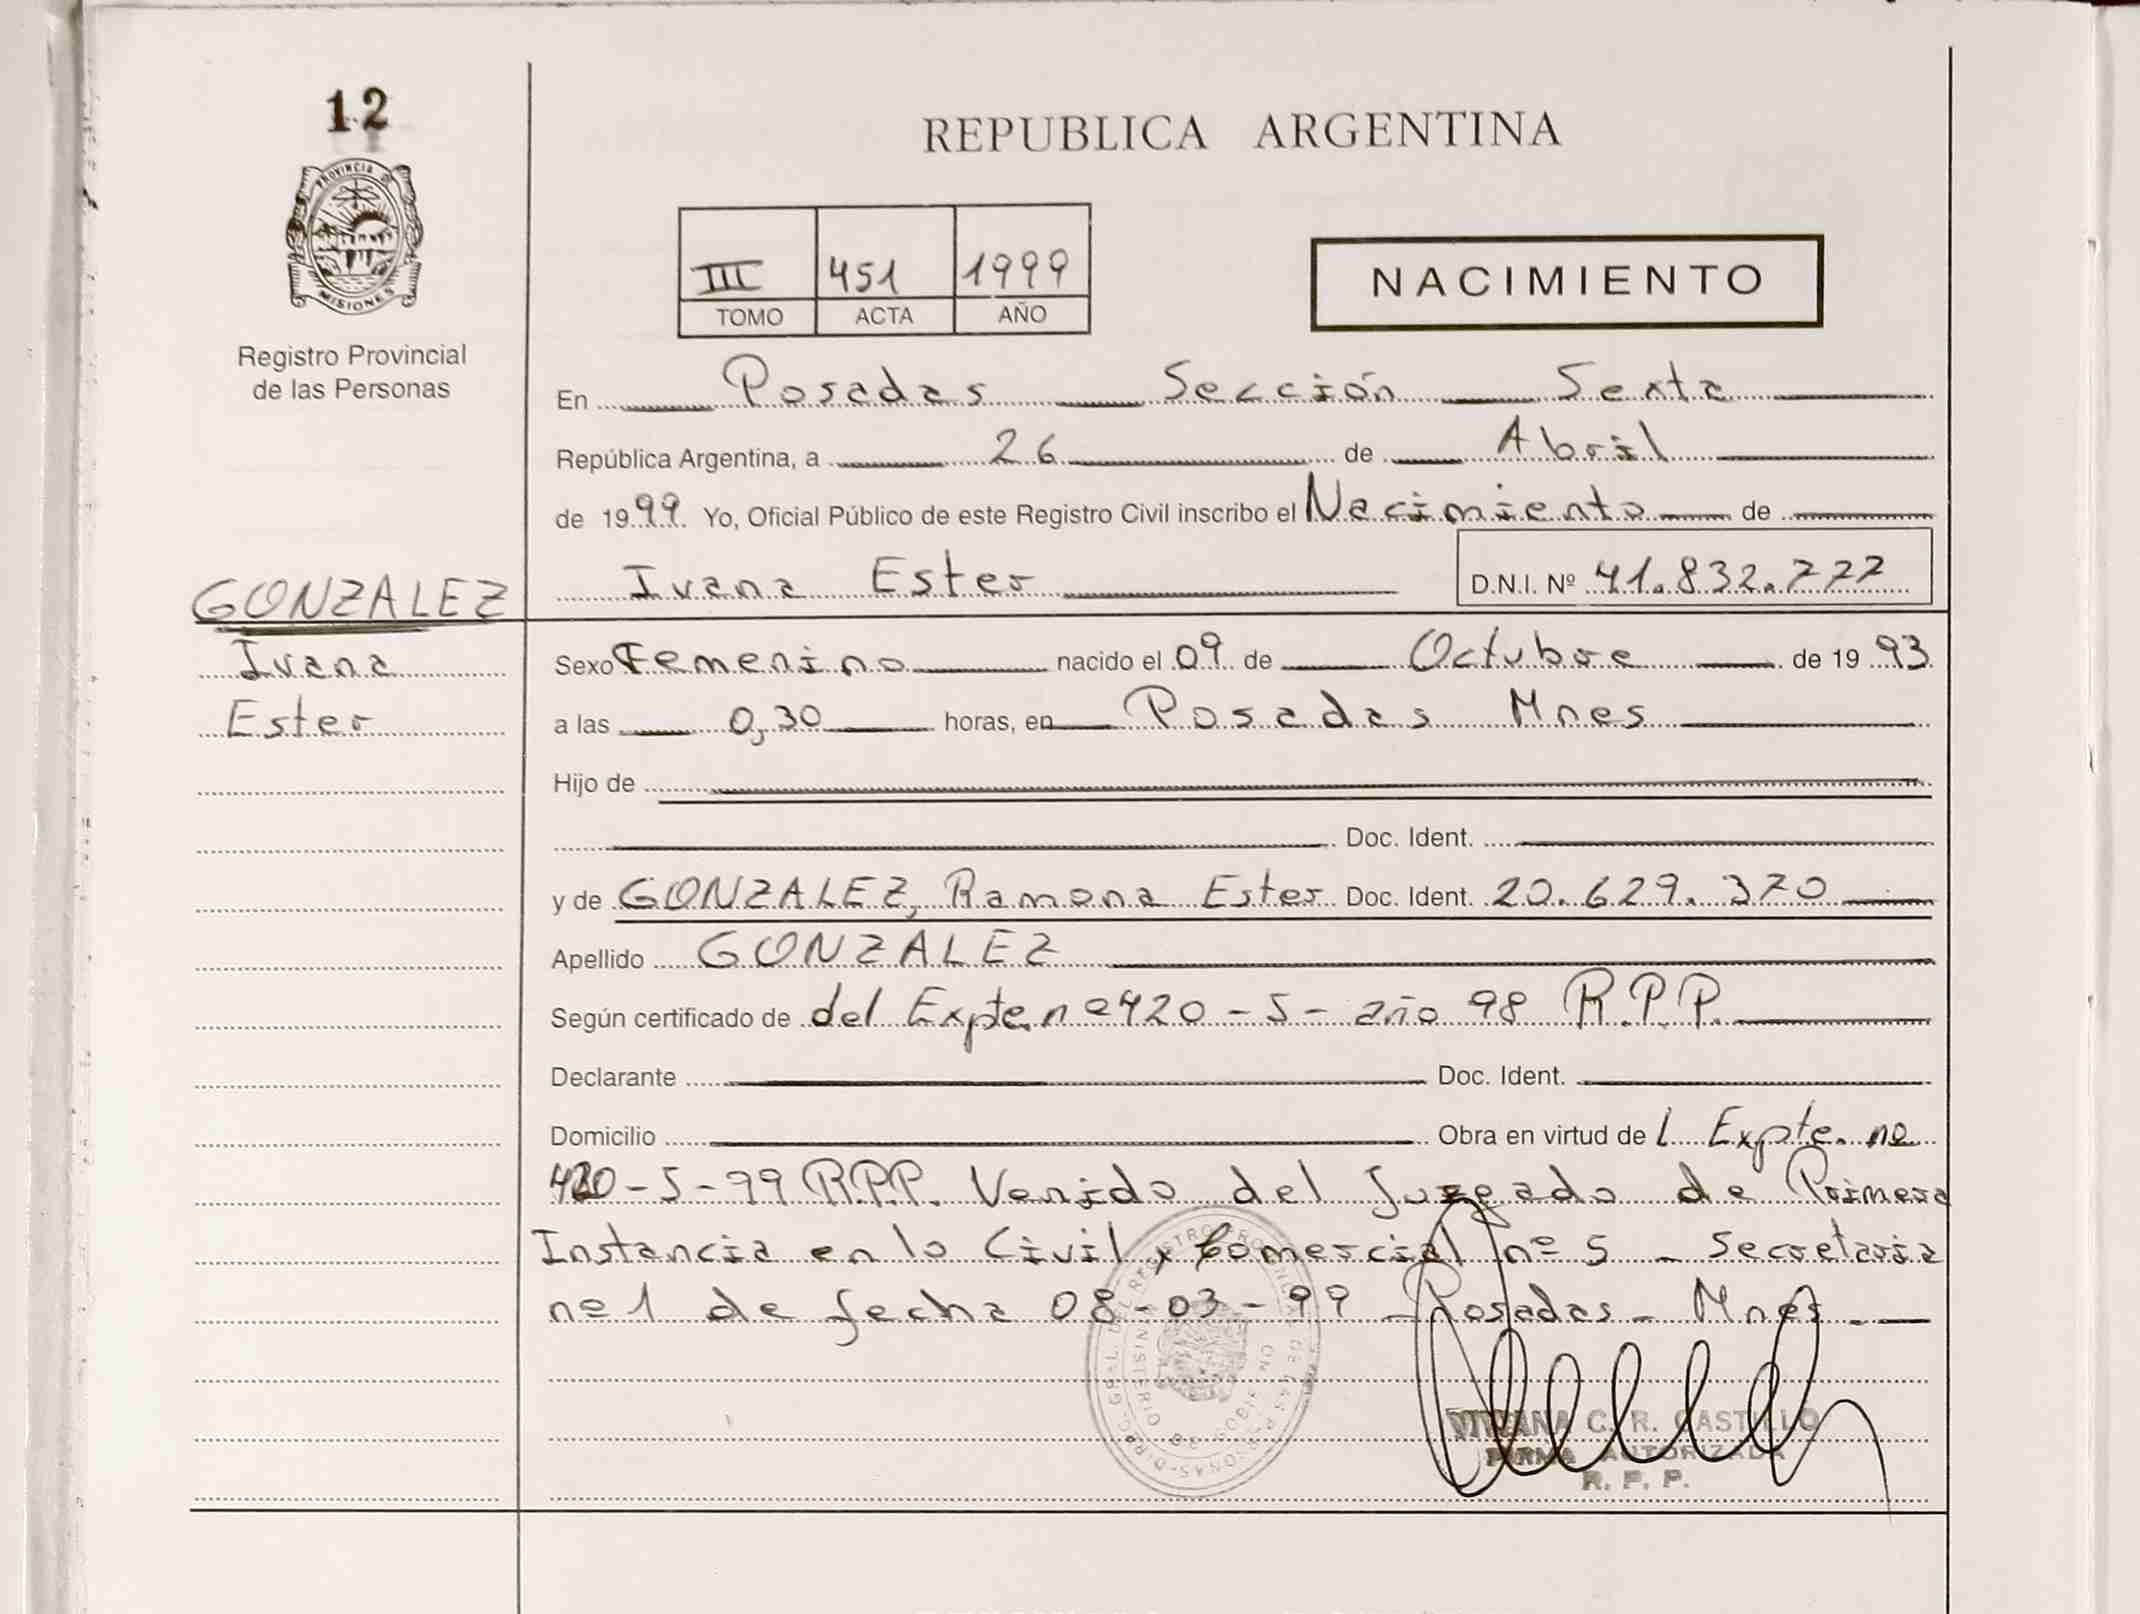 12
PROVINCIA D
MISIONES
Registro Provincial
de las Personas
REPUBLICA ARGENTINA
III 451 1999
TOMO ACTA AÑO
NACIMIENTO
En Posadas Sección Sexta
República Argentina, a 26 de Abril
de 1999 Yo, Oficial Público de este Registro Civil inscribo el Nacimiento de
Ivana Ester D.N.I. Nº 41.832.777
GONZALEZ
Ivana
Ester
Sexo Femenino nacido el 09 de Octubre de 1993
a las 0,30 horas, en Posadas Mnes
Hijo de
Doc. Ident.
y de GONZALEZ, Ramona Ester Doc. Ident. 20.629.370
Apellido GONZALEZ
Según certificado de del Expte. nº 420-5- año 98 R.P.P.
Declarante Doc. Ident.
Domicilio Obra en virtud de l Expte. nº
420-5-99 R.P.P. Venido del Juzgado de Primera
Instancia en lo Civil y Comercial nº 5 - Secretaria
nº 1 de fecha 08-03-99 - Posadas - Mnes.-
VIVIANA C. R. CASTILLO
FIRMA AUTORIZADA
R. P. P.